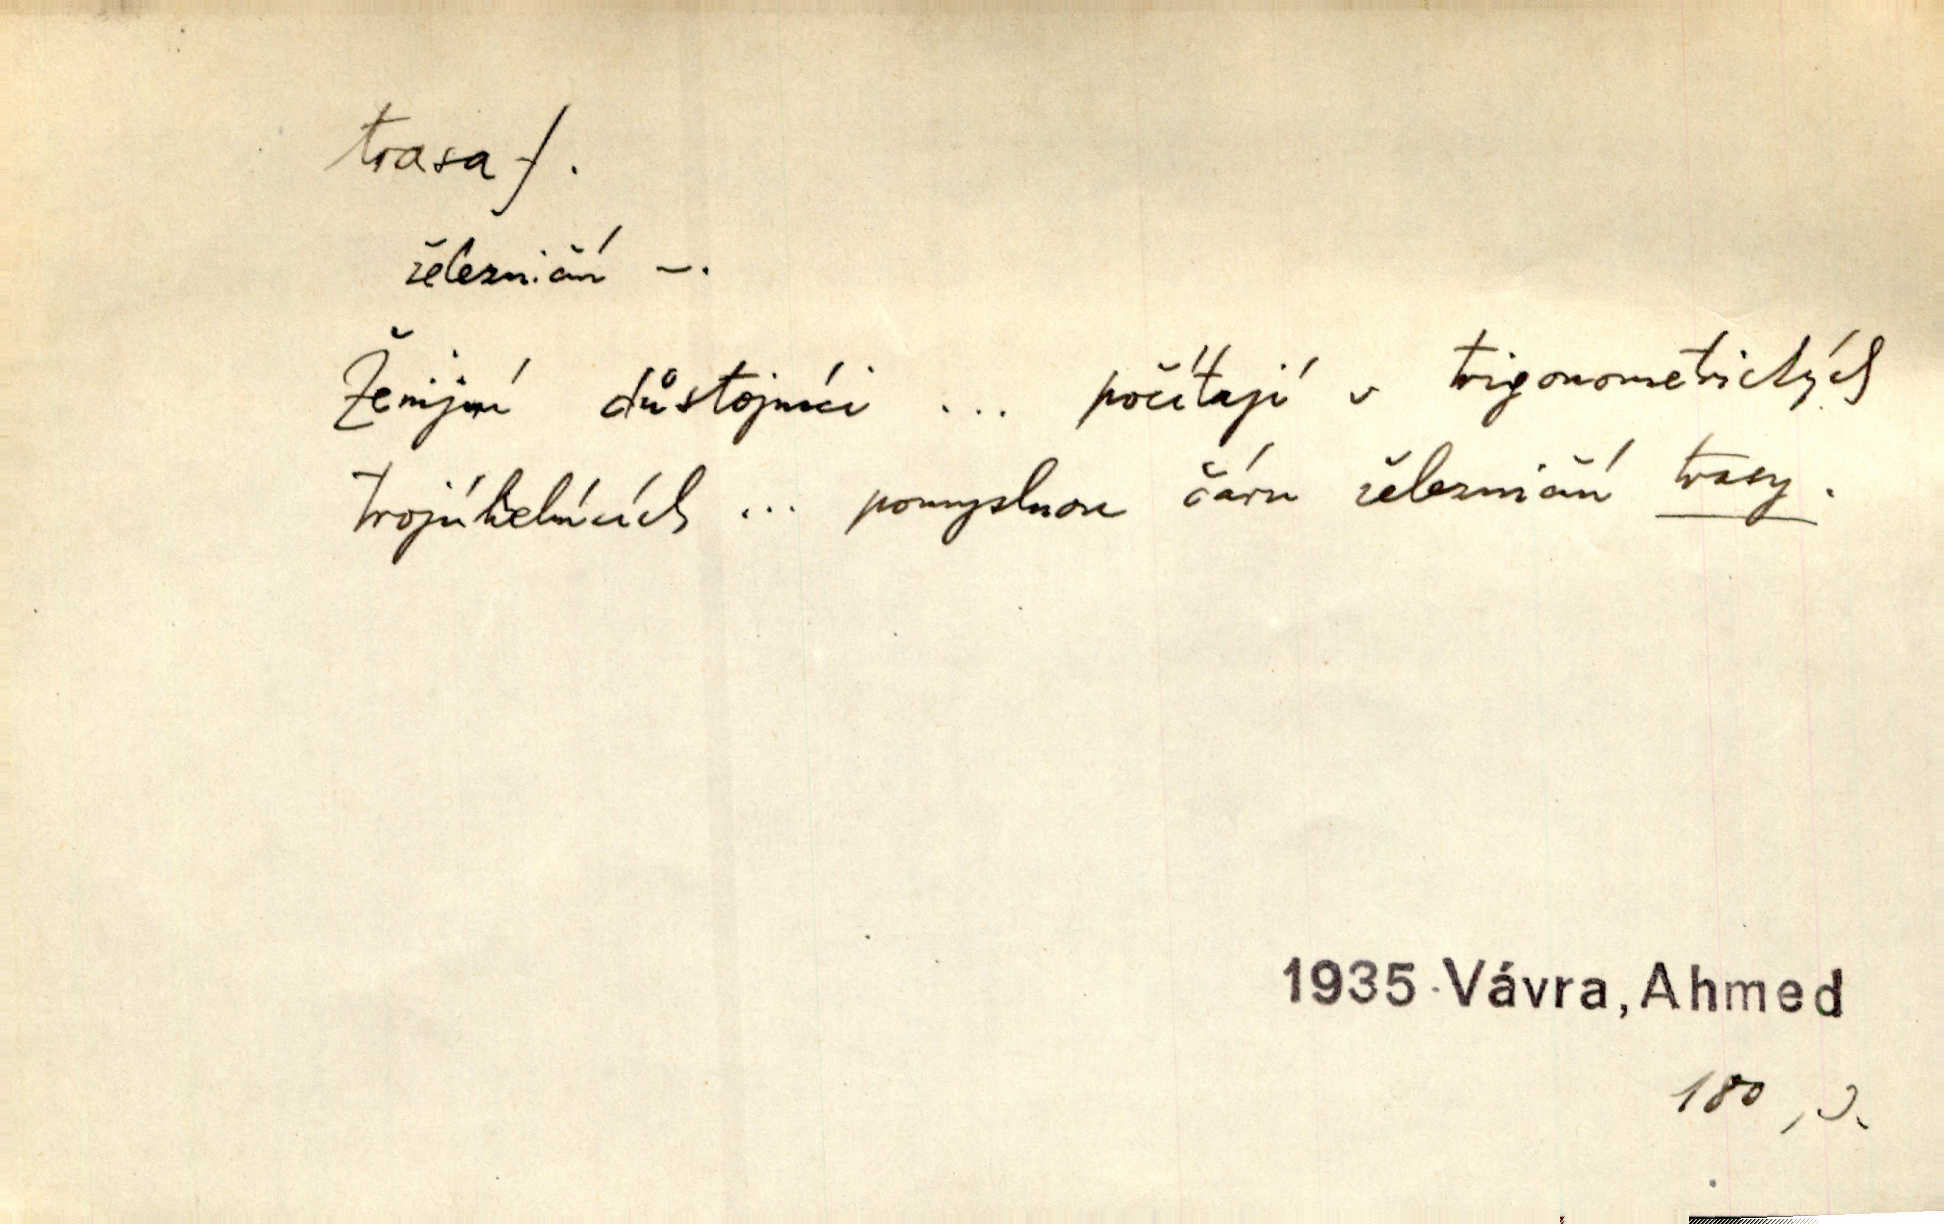 trasa f.
železniční –.
Ženijní důstojníci ... počítají v trigonometrických
trojúhelnících ... pomyslnou čáru železniční trasy.
1935 Vávra, Ahmed
180,